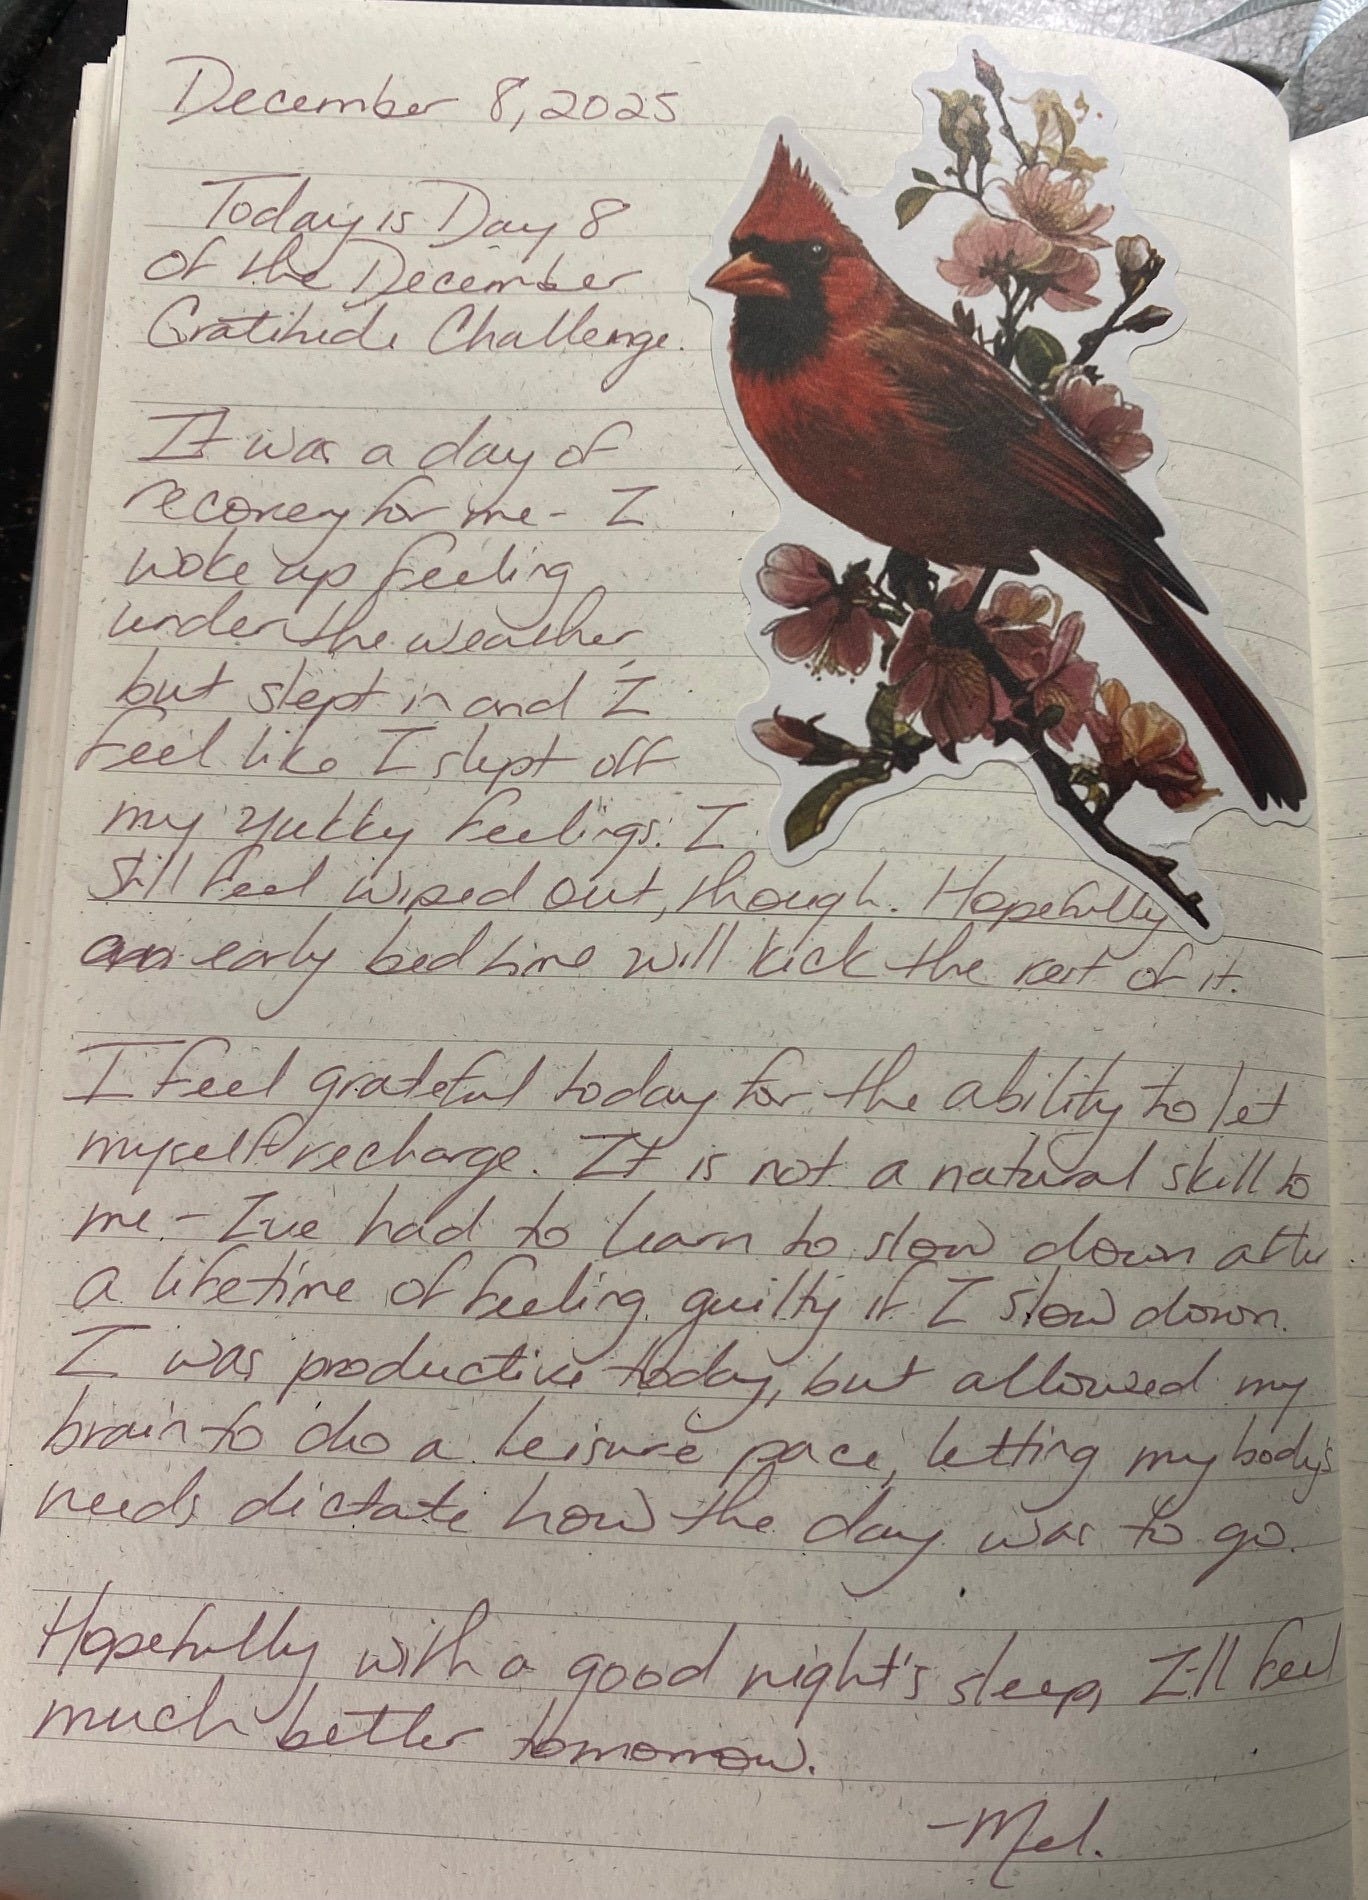 December 8, 2025
Today is Day 8
of the December
Gratitude Challenge.
It was a day of
recovery for me - I
woke up feeling
under the weather,
but slept in and I
feel like I slept off
my yukky feelings. I
still feel wiped out, though. Hopefully
an early bedtime will kick the rest of it.
I feel grateful today for the ability to let
myself recharge. It is not a natural skill to
me - I've had to learn to slow down after
a lifetime of feeling guilty if I slow down.
I was productive today, but allowed my
brain to do a leisure pace, letting my body's
needs dictate how the day was to go.
Hopefully with a good night's sleep, I'll feel
much better tomorrow.
-Mel.